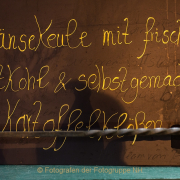 änsekeule mit frisch
tkohl & selbstgemac
Kartoffelklößen
© Fotografen der Fotogruppe Nec